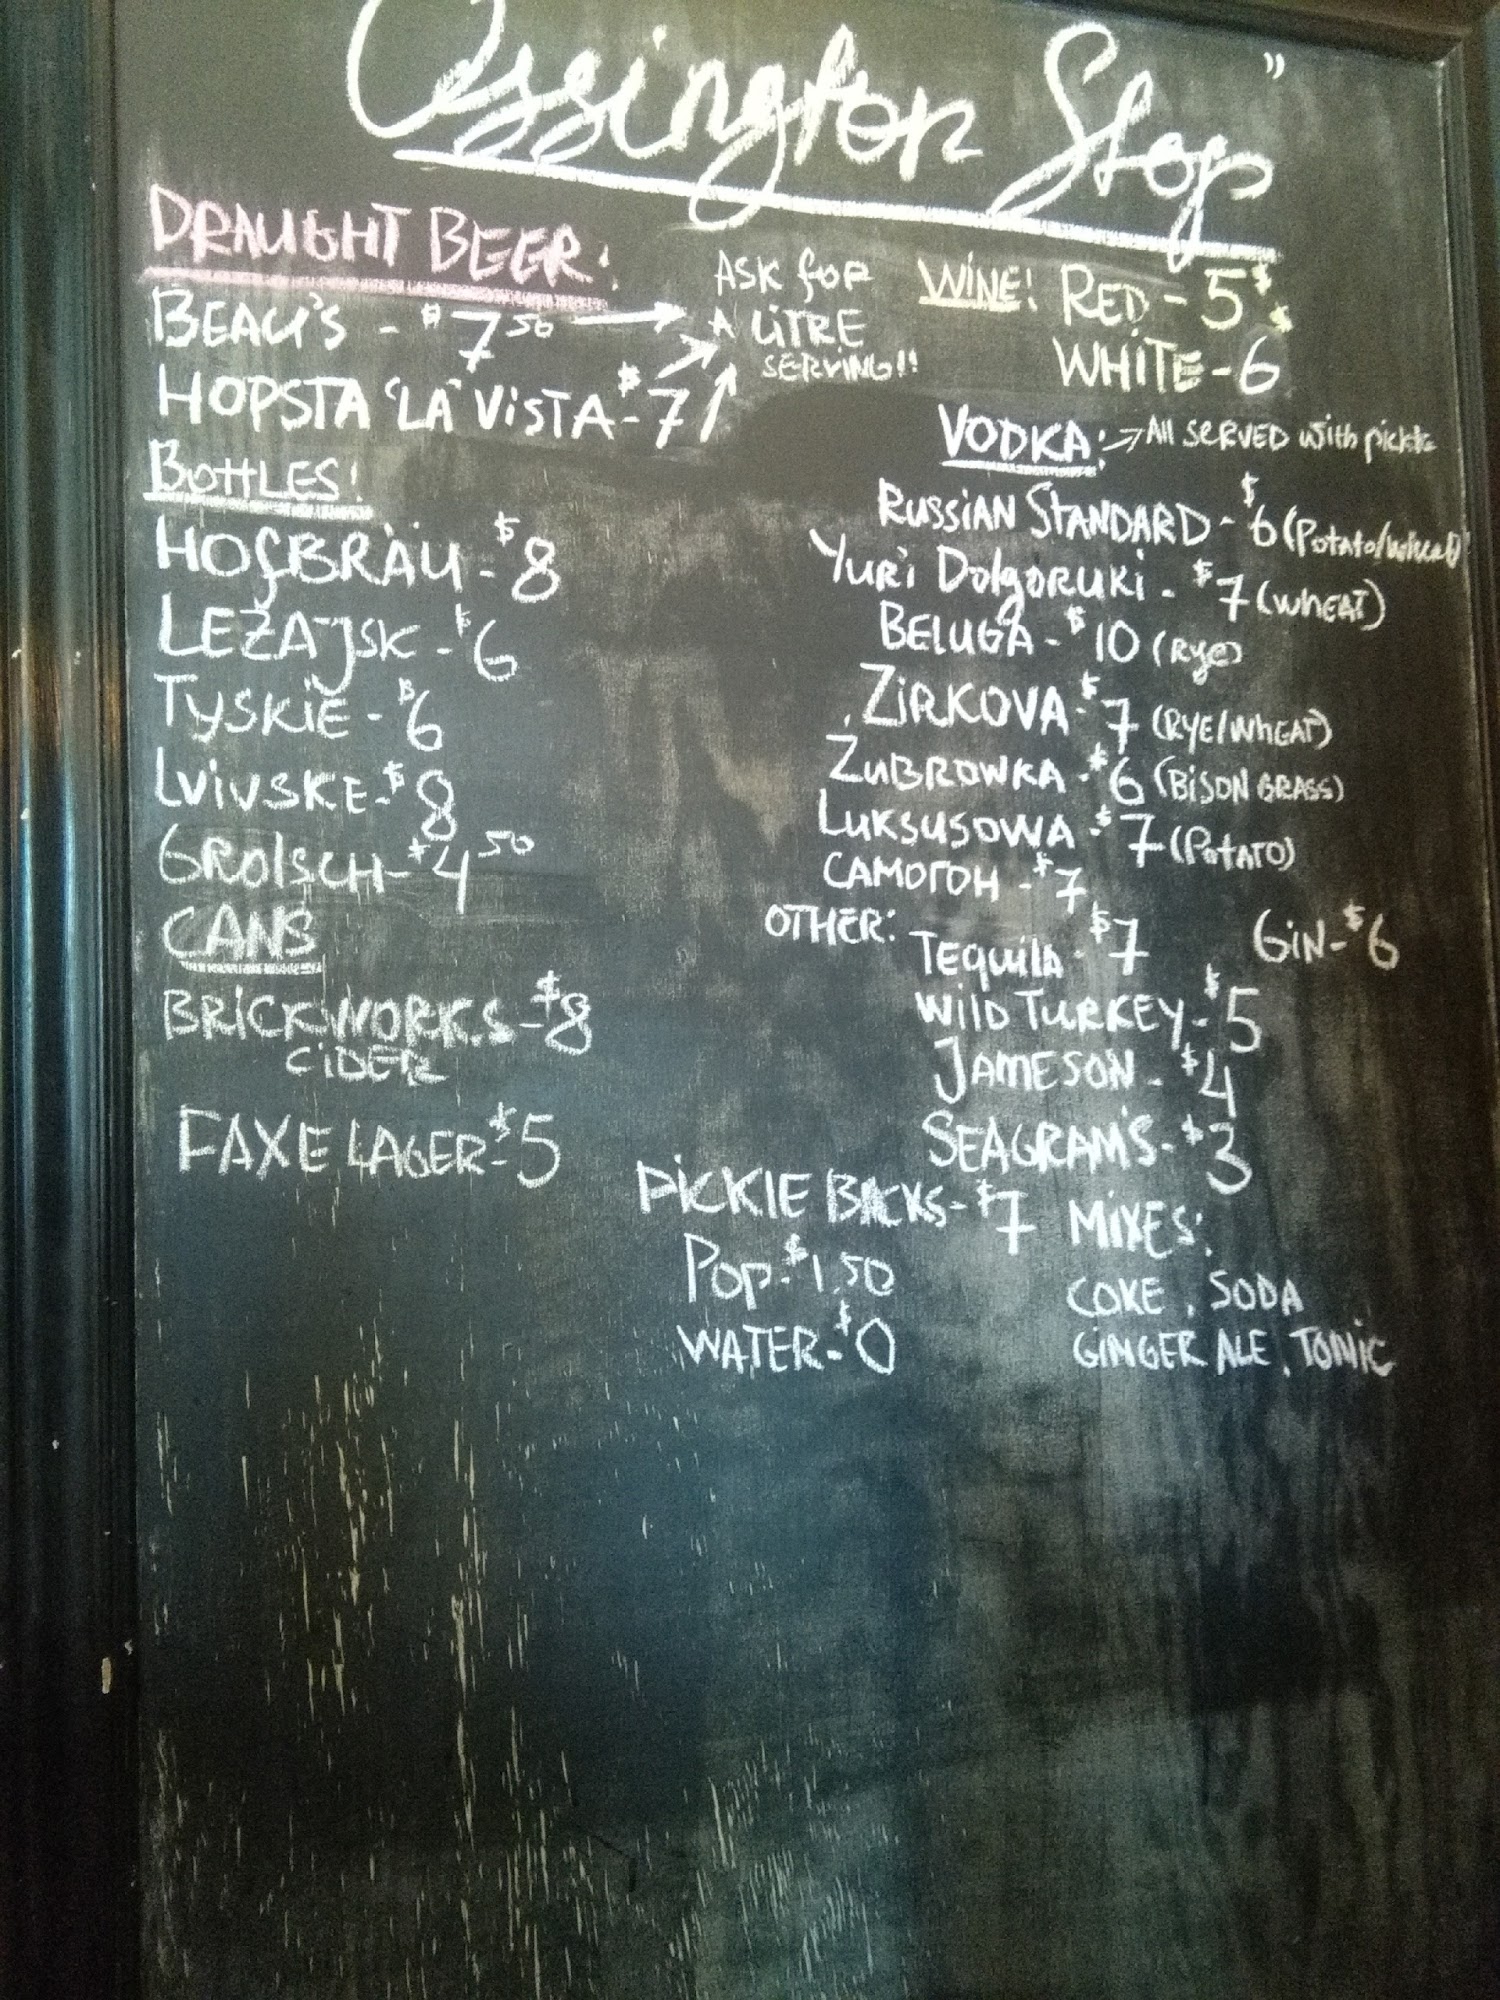 Ossington Stop"
DRAUGHT BEER:
BEAU'S - $7.50
HOPSTA 'LA' VISTA - $7
ASK for
A LITRE
SERVING!!
BOTTLES!
HOfBRÄU - $8
LEŻAJSK - $6
TYSKIE - $6
LVIVSKE - $8
GROLSCH - $4 50
CANS
BRICKWORKS - $8
CIDER
FAXE LAGER - $5
WINE! RED - 5$
WHITE - 6$
VODKA: → All SERVED with pickle
RUSSIAN STANDARD - $6 (Potato/wheat)
Yuri Dolgoruki - $7 (WHEAT)
BELUGA - $10 (Rye)
ZIRKOVA - $7 (RYE/WHEAT)
ŻUBROWKA - $6 (BISON GRASS)
LUKSUSOWA - $7 (POTATO)
САМОГОН - $7
OTHER:
TEQUILA - $7 GIN - $6
WILD TURKEY - $5
JAMESON - $4
SEAGRAM'S - $3
PICKLE BACKS - $7
POP - $1.50
WATER - $0
MIXES:
COKE, SODA
GINGER ALE, TONIC